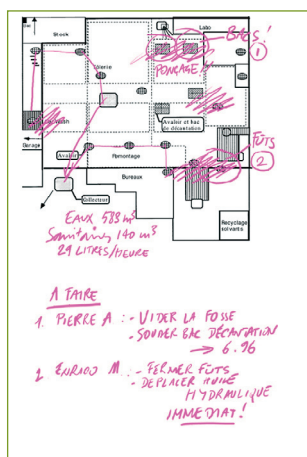 Stock
Labo
BACS!
1
PONÇAGE
Tôlerie
Avaloir et bac
de décantation
Garage
Avaloir
Remontage
FÛTS
2
Bureaux
Collecteur
Recyclage
solvants
EAUX 583 m³
Sanitaires 140 m³
29 LITRES/HEURE
A FAIRE
1. PIERRE A : - VIDER LA FOSSE
- SONDER BAC DÉCANTATION
→ 6.96
2 ENRICO M. : - FERMER FÛTS
- DEPLACER HUILE
HYDRAULIQUE
IMMEDIAT!